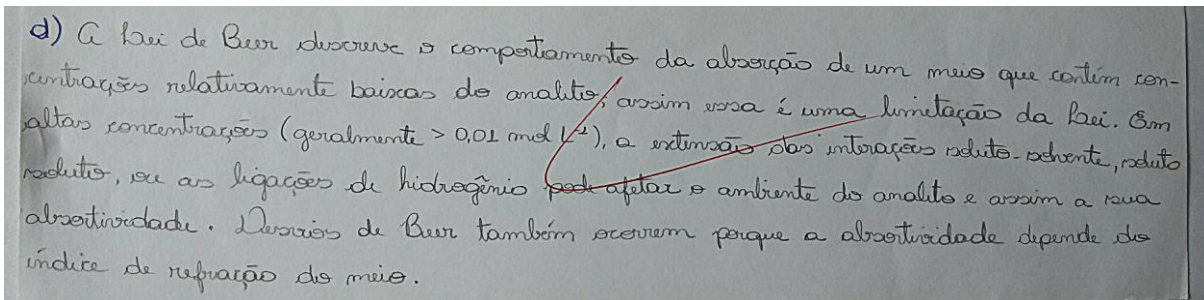 d) A Lei de Beer descreve o comportamento da absorção de um meio que contém con-
centrações relativamente baixas do analito, assim essa é uma limitação da Lei. Em
altas concentrações (geralmente > 0,01 mol L⁻¹), a extensão das interações soluto-solvente, soluto
soluto, ou as ligações de hidrogênio pode afetar o ambiente do analito e assim a sua
absortividade. Desvios de Beer também ocorrem porque a absortividade depende do
índice de refração do meio.